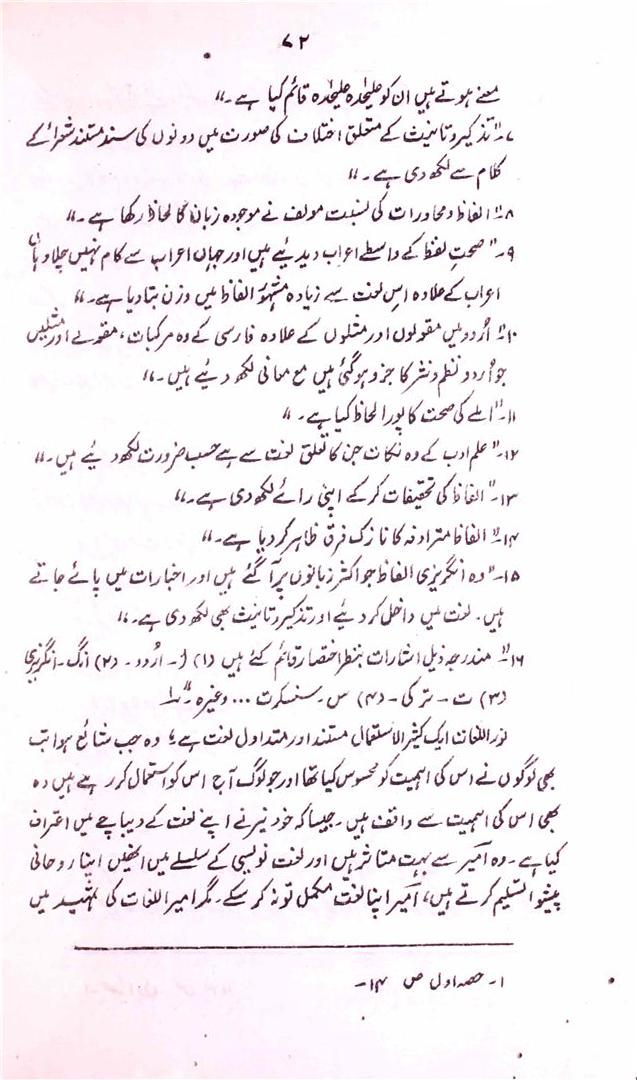 ۷۲
معنے ہوتے ہیں ان کو علیحدہ علیحدہ قائم کیا ہے۔"
۷۔" تذکیر و تانیث کے متعلق اختلاف کی صورت میں دونوں کی سند مستند شعراء کے
کلام سے لکھ دی ہے۔"
۸۔" الفاظ و محاورات کی نسبت مولف نے موجودہ زبان کا لحاظ رکھا ہے۔"
۹۔" صحتِ لفظ کے واسطے اعراب دیدیئے ہیں اور جہاں اعراب سے کام نہیں چلا وہاں
اعراب کے علاوہ اس لغت سے زیادہ مشہور الفاظ میں وزن بتا دیا ہے۔"
۱۰۔" اُردو میں مقولوں اور مثلوں کے علاوہ فارسی کے وہ مرکبات، مقولے اور مثلیں
جو اُردو نظم و نثر کا جزو ہو گئی ہیں مع معانی لکھ دیئے ہیں۔"
۱۱۔" املے کی صحت کا پورا لحاظ کیا ہے۔"
۱۲۔" علم ادب کے وہ نکات جن کا تعلق لغت سے ہے حسب ضرورت لکھ دیئے ہیں۔"
۱۳۔" الفاظ کی تحقیقات کر کے اپنی رائے لکھ دی ہے۔"
۱۴۔" الفاظ مترادفہ کا نازک فرق ظاہر کر دیا ہے۔"
۱۵۔" وہ انگریزی الفاظ جو اکثر زبانوں پر آ گئے ہیں اور اخبارات میں پائے جاتے
ہیں۔ لغت میں داخل کر دیئے اور تذکیر و تانیث بھی لکھ دی ہے۔"
۱۶۔" مندرجہ ذیل اشارات بنظر اختصار قائم کئے ہیں (۱) ا۔ اُردو۔ (۲) انگ۔ انگریزی
(۳) ت۔ ترکی۔ (۴) س۔ سنسکرت ... وغیرہ۔" ۱؎
نور اللغات ایک کثیر الاستعمال مستند اور متداول لغت ہے، وہ جب شائع ہوا تب
بھی لوگوں نے اس کی اہمیت کو محسوس کیا تھا اور جو لوگ آج اس کو استعمال کر رہے ہیں وہ
بھی اس کی اہمیت سے واقف ہیں۔ جیسا کہ خود نیر نے اپنے لغت کے دیباچے میں اعتراف
کیا ہے۔ وہ امیر سے بہت متاثر ہیں اور لغت نویسی کے سلسلے میں انھیں اپنا روحانی
پیشوا تسلیم کرتے ہیں، امیر اپنا لغت مکمل تو نہ کر سکے۔ مگر امیر اللغات کی تمہید میں
۱۔ حصہ اول ص ۱۴۔